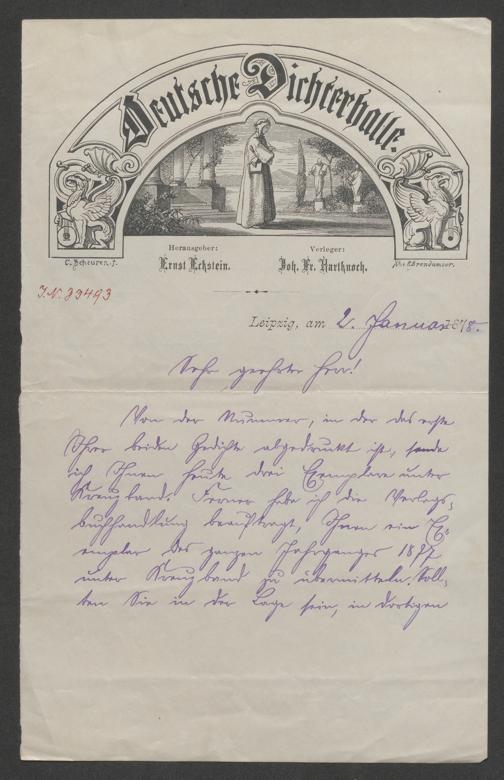 Deutsche Dichterhalle.
C. Scheuren. f.
Herausgeber:
Ernst Eckstein.
Verleger:
Joh. Fr. Hartknoch.
R. Brendamour.
I.N. 29493
Leipzig, am 2. Januar 1878.
Sehr geehrter Herr!
Von der Nummer, in der das erste
Ihrer beiden Gedichte abgedruckt ist, sende
ich Ihnen heute drei Exemplare unter
Kreuzband. Ferner habe ich die Verlags-
buchhandlung beauftragt, Ihnen ein Ex-
emplar des ganzen Jahrganges 1877
unter Kreuzband zu übermitteln. Soll-
ten Sie in der Lage sein, in dortigen